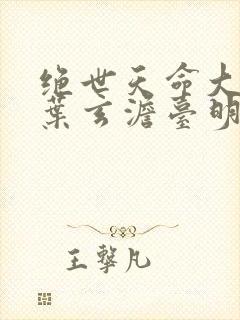 绝世天命大
葉玄澹臺明
王擊凡